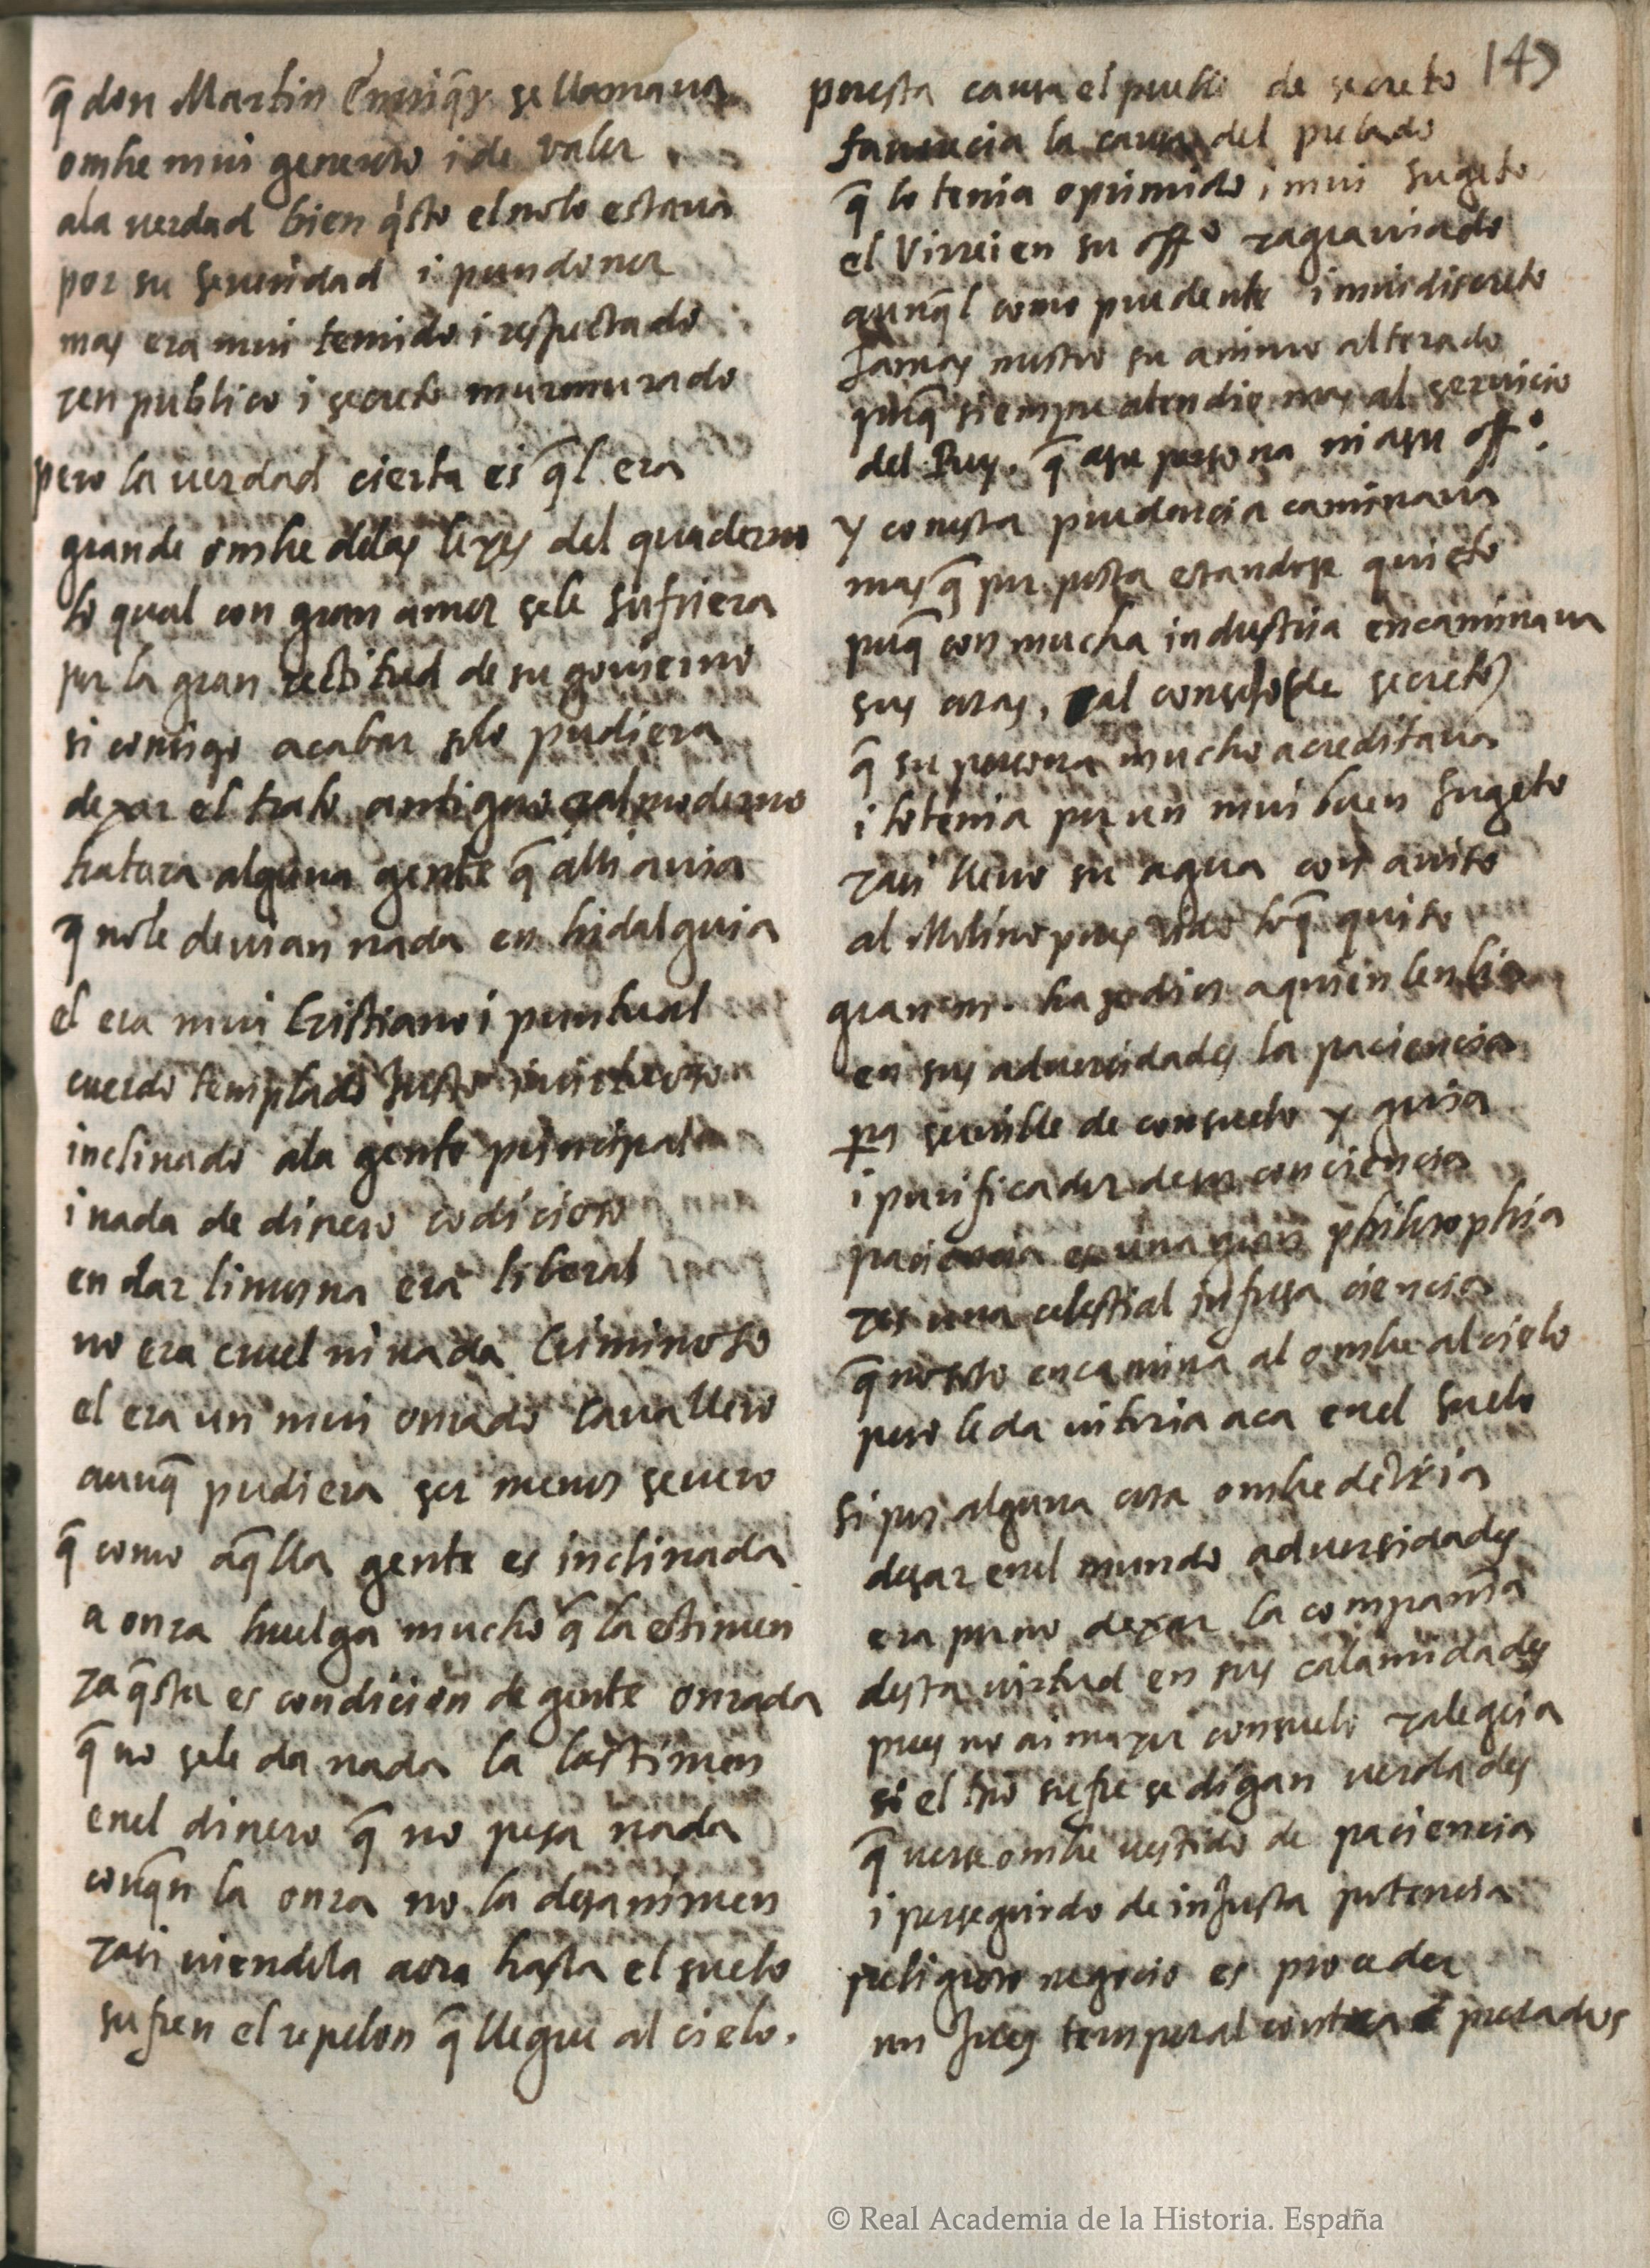 q̄ don Martin Enriq̄z se llamaua
ombre mui generoso i de valor
ala uerdad bien q̇sto el nolo estaua
por su seueridad i pundonor
mas era mui temido i respectado
y en publico i secreto murmurado
pero la uerdad cierta es q̄l era
grande ombre delas leyes del quaderno
lo qual con gran amor sele sufriera
por la gran rectitud de su gouierno
si consigo acabar solo pudiera
dexar el trato antiguo y al moderno
tratara alguna gente q̄ alli auia
q̄ nole deuian nada en hidalguia
el era mui Cristiano i puntual
cuerdo templado Justo i uirtuoso
inclinado ala gente principal
i nada de dinero codicioso
en dar limosna era liberal
no era cruel ni nada Criminoso
el era un mui onrado Cauallero
aunq̄ pudiera ser menos seuero
q̄ como aq̄lla gente es inclinada
a onra huelga mucho q̄ la estimen
ya q̄sta es condicion de gente onrada
q̄ no sele da nada la lastimen
enel dinero q̄ no pesa nada
conq̄n la onra no la desanimen
y asi uiendola aora hasta el suelo
sufren el repelon q̄ llegue al cielo.
145
poresta causa el pueblo de secreto
fauorecia la causa del prelado
q̄ lo tenia oprimido i mui sugeto
el Virrei en su offo y agrauiado
aunq̄l como prudente i mui discreto
Jamas mostro su animo alterado
porq̄ siempre atendio mas al seruicio
del Rey. q̄ asu persona ni asu offo.
y conesta prudencia caminaua
mas q̄ por posta estandose quieto
porq̄ con mucha industria encaminaua
sus cosas, y al consejo (de secreto)
q̄ su persona mucho acreditaua
i lo tenia por un mui buen sugeto
y asi lleuo su agua con auiso
al Molino pues hizo loq̄ quiso
gran mr. haze dios a quien lenbia
en sus aduersidades la paciencia
pa seruirle de consuelo y guia
i purificador desu conciencia
paciencia es una gran philosophia
y es una celestial infusa ciencia
q̄ no solo encamina al ombre al cielo
pero le da uitoria aca enel suelo
si por alguna cosa ombre deuria
desear enel mundo aduersidades
era por no dexar la compania
desta uirtud en sus calamidades
pues no ai mayor consuelo y alegria
si el tpo sufre se digan uerdades
q̄ uerse ombre uestido de paciencia
i perseguido de inJusta potencia
peligroso negocio es proceder
un Juez temporal contra prelados
© Real Academia de la Historia. España